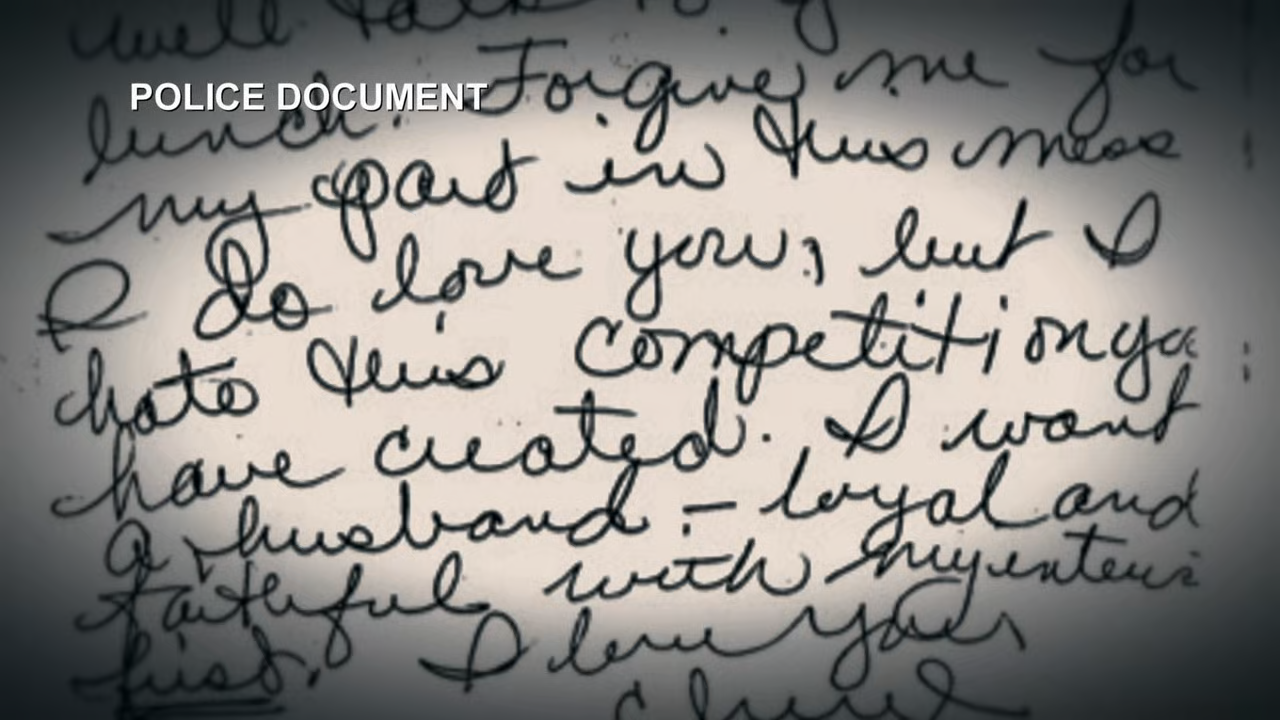 well talk to
POLICE DOCUMENT
lunch. Forgive me for
my part in this mess
I do love you, but I
hate this competition yo
have created. I want
a husband - loyal and
faithful with my
first. I love you,